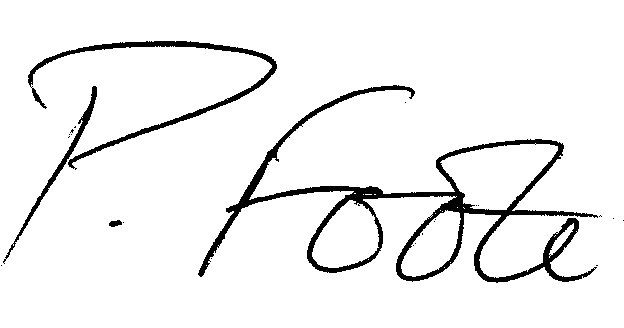 P. Foote